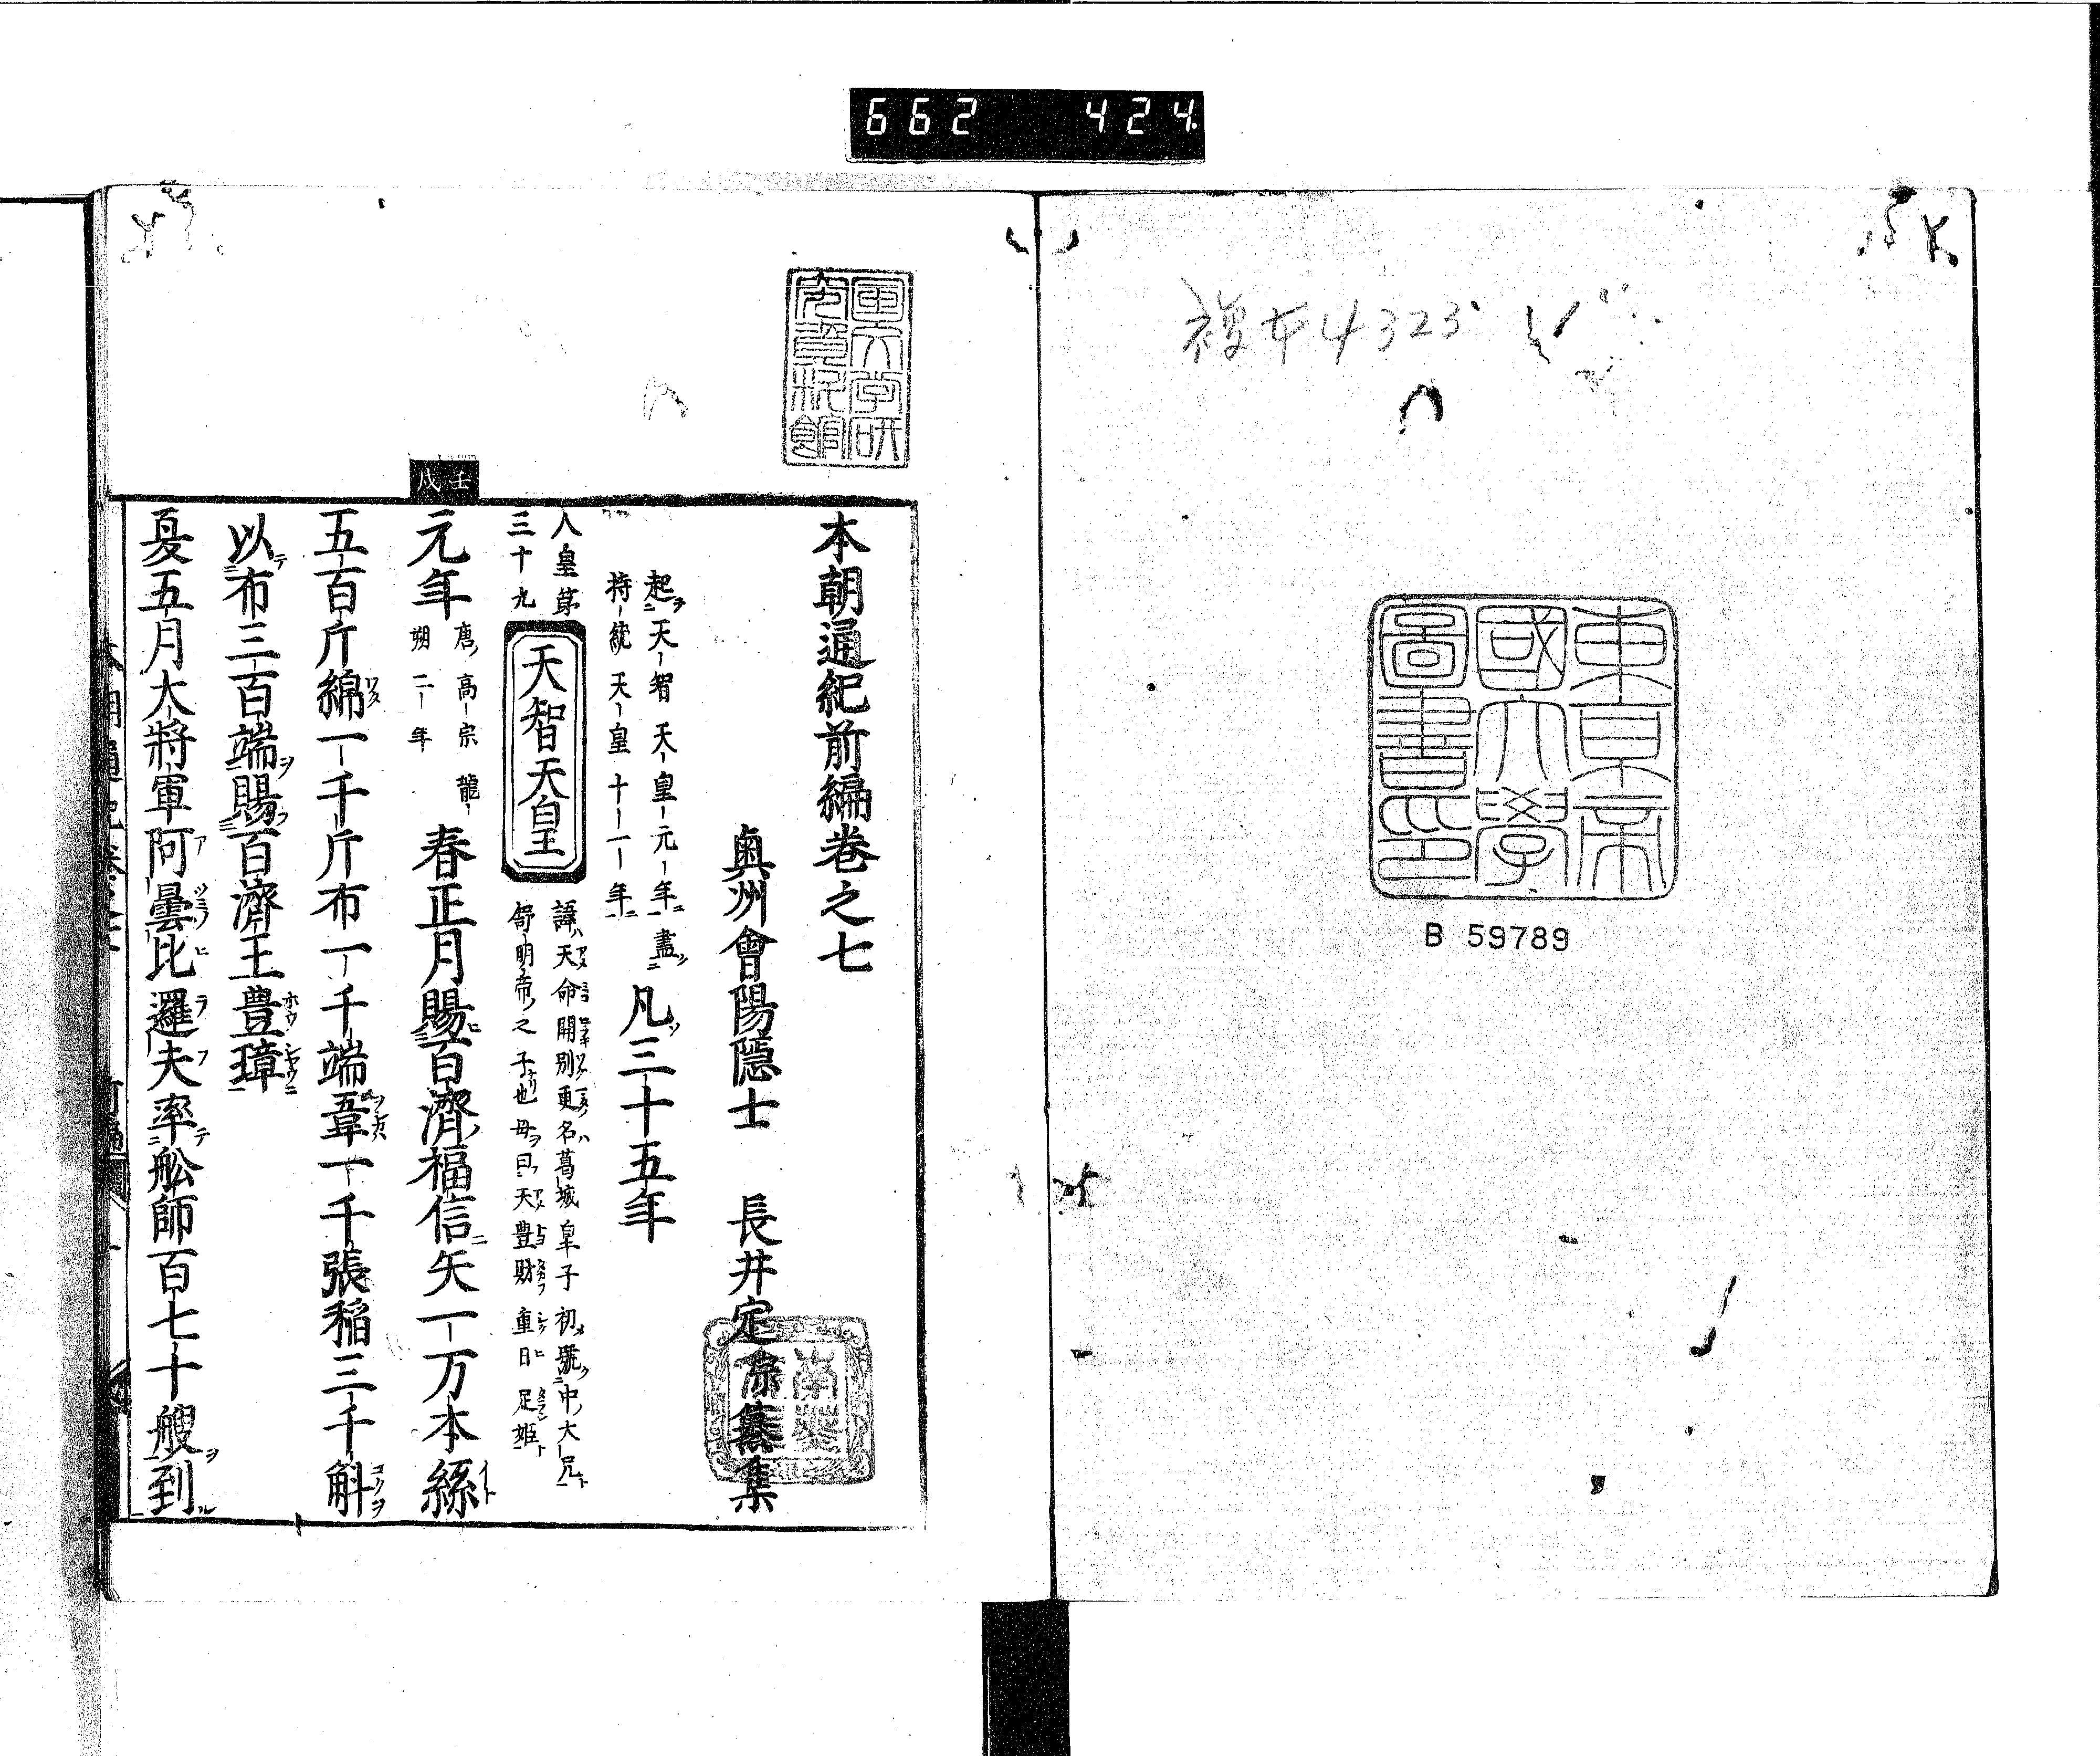 662 424
複本4323
東京帝
國大學
圖書印
B 59789
本朝通紀前編卷之七
奧州會陽隱士 長井定宗纂集
起天智天皇元年盡
持統天皇十一年
凡三十五年
人皇第
三十九
天智天皇
諱天命開別更名葛城皇子初號中大兄
舒明帝之子也母曰天豊財重日足姫
壬戌
元年
唐高宗龍
朔二年
春正月賜百濟福信矢一万本絲
五百斤綿一千斤布一千端韋一千張稲三千斛
以布三百端賜百濟王豊璋
夏五月大將軍阿曇比邏夫率舩師百七十艘到